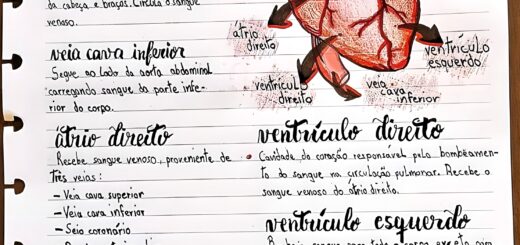 da cabeça e braços. Circula o sangue
venoso.
veia cava inferior
Segue ao lado da aorta abdominal
carregando sangue da parte infe-
rior do corpo.
átrio
direito
ventrículo
esquerdo
ventrículo
direito
veia
cava
inferior
átrio direito
Recebe sangue venoso, proveniente de
três veias:
- Veia cava superior
- Veia cava inferior
- Seio coronário
ventrículo direito
Cavidade do coração responsável pelo bombeamen-
to do sangue na circulação pulmonar. Recebe o
sangue venoso do átrio direito.
ventrículo esquerdo